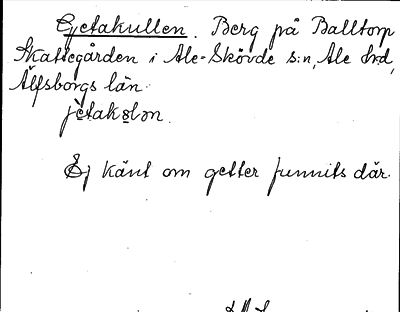 Getakullen. Berg på Balltorp
Skattegården i Ale-Skövde s:n, Ale hrd,
Älfsborgs län.
jètakɷlən.
Ej känt om getter funnits där.